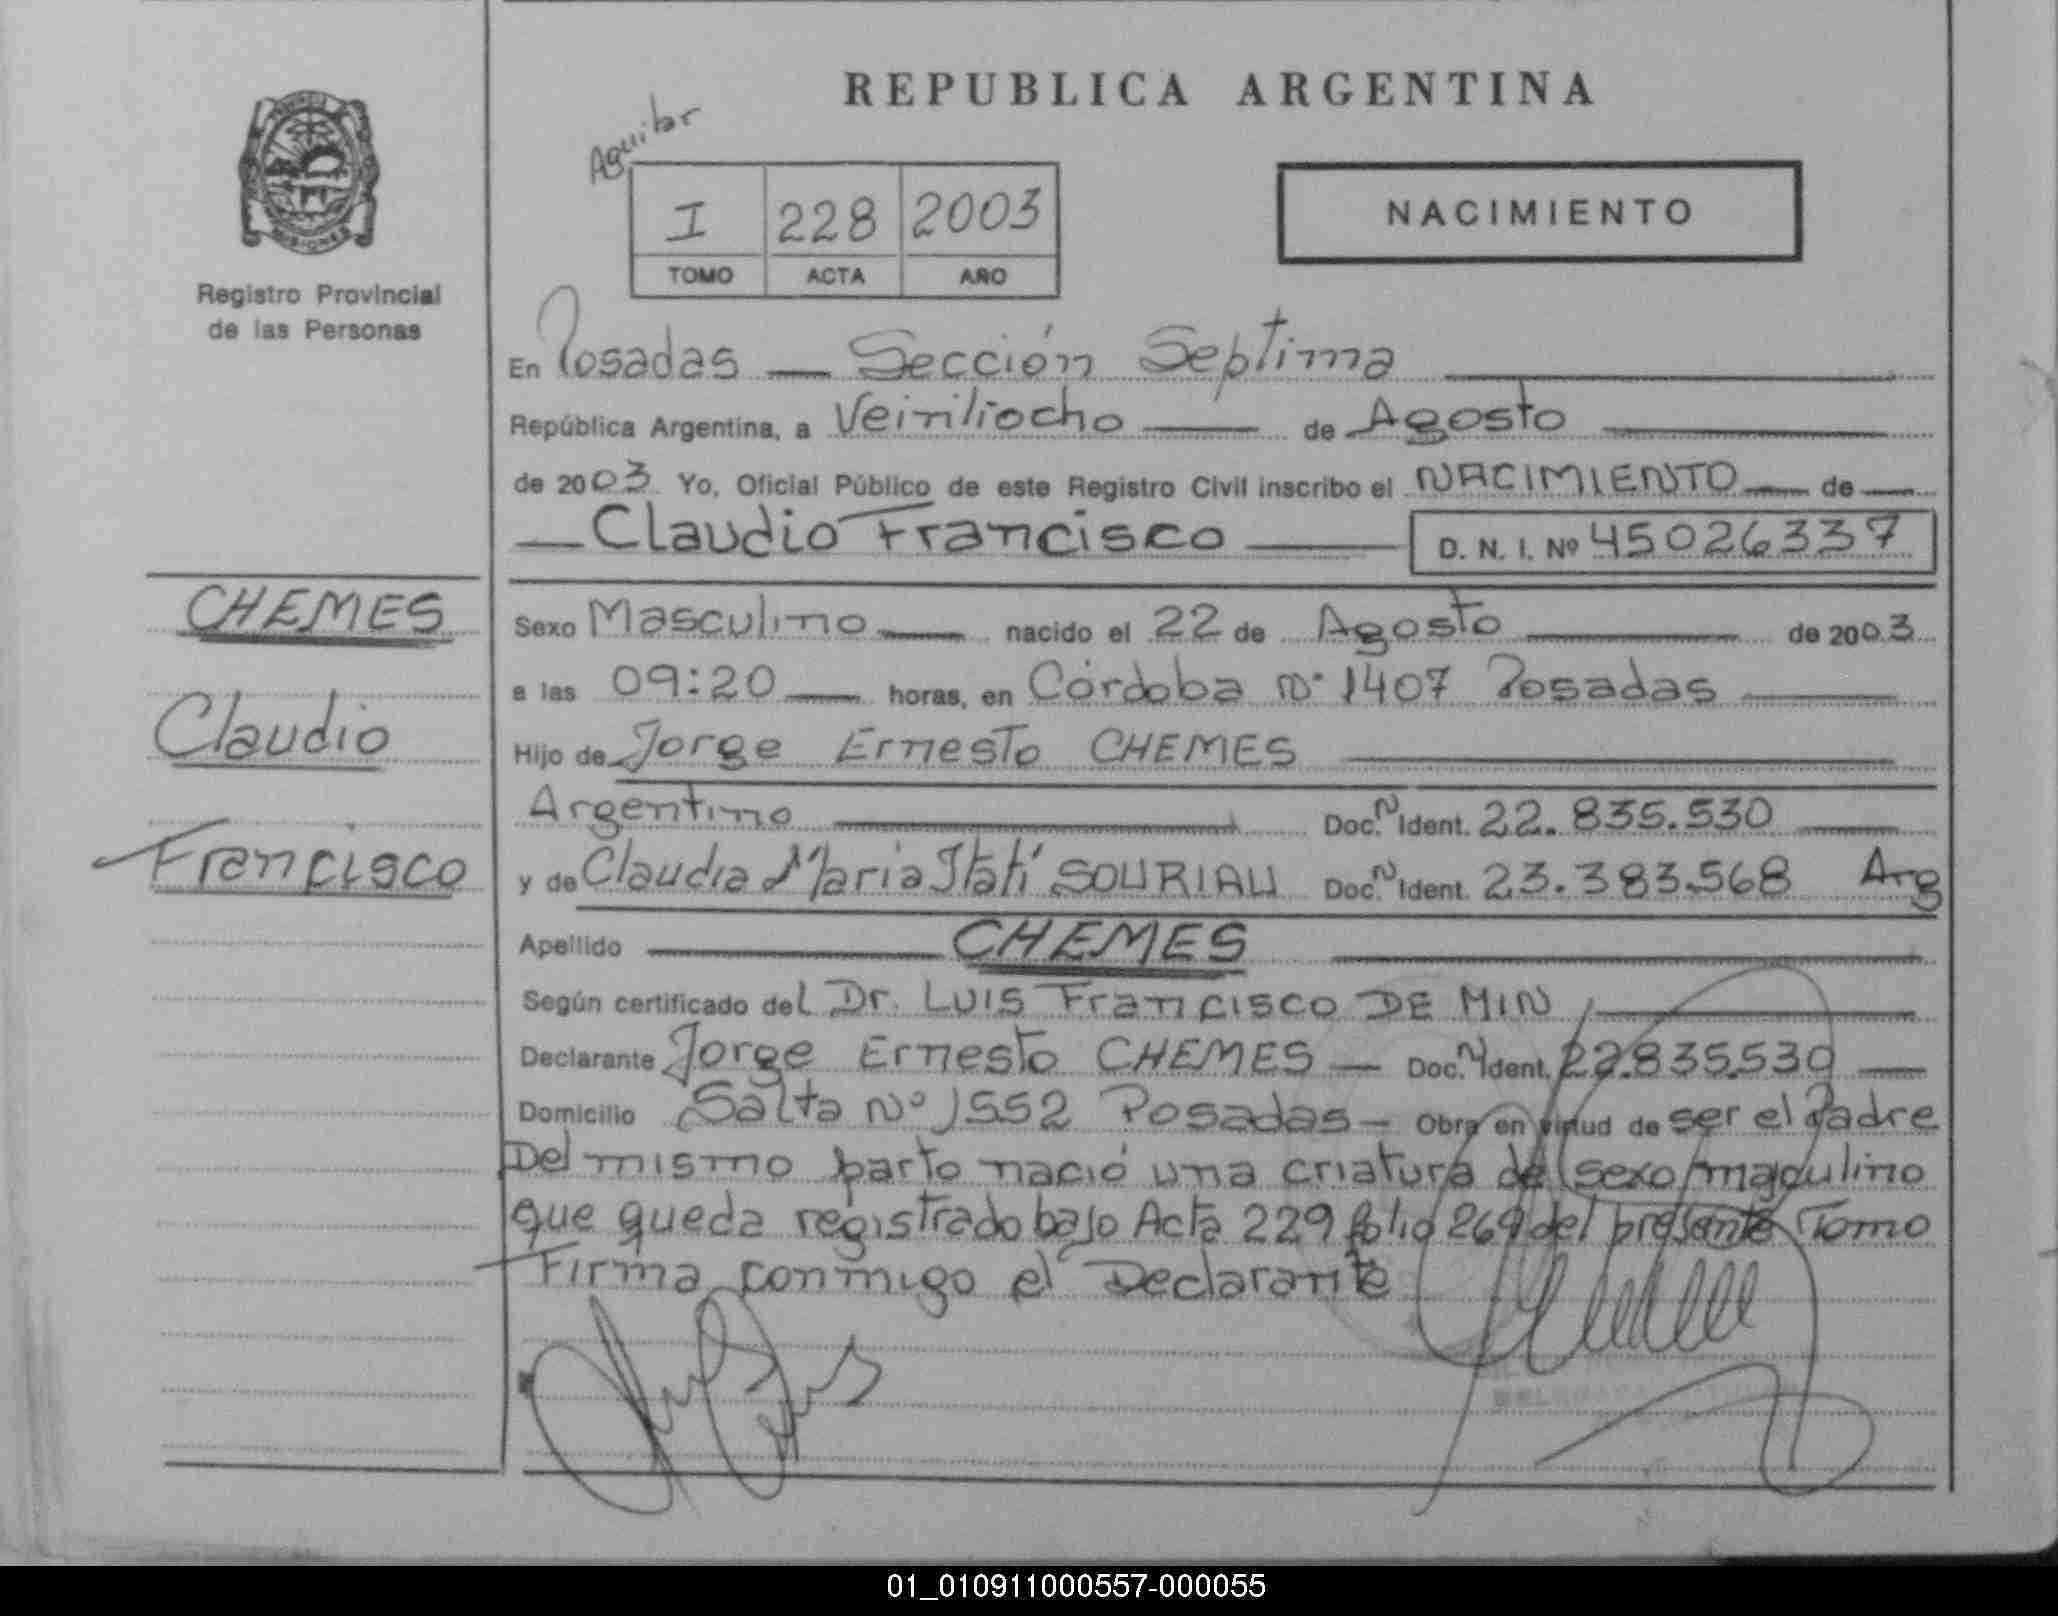 REPUBLICA ARGENTINA
Aguilar
I 228 2003
TOMO ACTA AÑO
NACIMIENTO
MISIONES
Registro Provincial
de las Personas
En Posadas — Sección Septima
República Argentina, a Veintiocho de Agosto
de 2003 Yo, Oficial Público de este Registro Civil inscribo el NACIMIENTO de
Claudio Francisco D. N. I. Nº 45026337
CHEMES
Claudio
Francisco
Sexo Masculino nacido el 22 de Agosto de 2003
a las 09:20 horas, en Córdoba Nº 1407 Posadas
Hijo de Jorge Ernesto CHEMES
Argentino Doc. N Ident. 22.835.530
y de Claudia María Itatí SOURIAU Doc. N Ident. 23.383.568 Arg
Apellido CHEMES
Según certificado del Dr. LUIS Francisco DE MIN
Declarante Jorge Ernesto CHEMES — Doc. N Ident. 22.835.530
Domicilio Salta Nº 1552 Posadas — Obra en virtud de ser el Padre
Del mismo parto nació una criatura del sexo masculino
que queda registrado bajo Acta 229 folio 269 del presente Tomo
Firma conmigo el Declarante
01_010911000557-000055